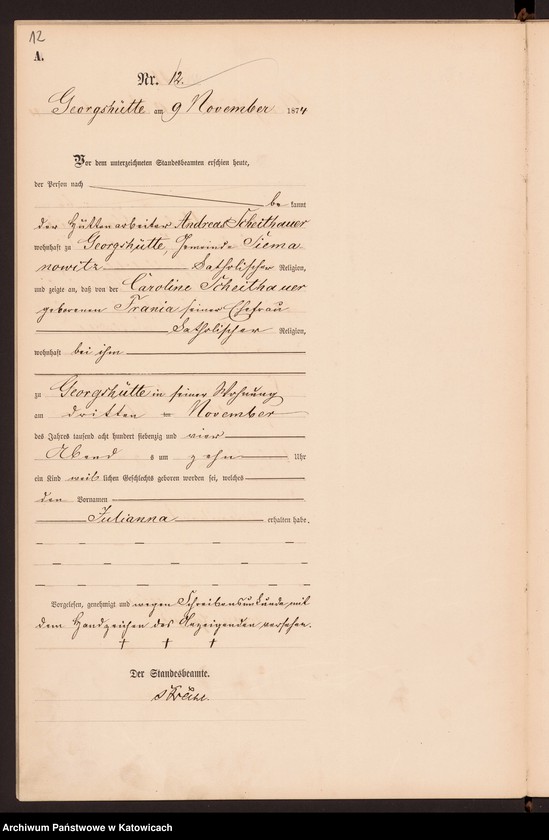 12
A.
Nr. 12.
Georgshütte am 9 November 1874
Vor dem unterzeichneten Standesbeamten erschien heute,
der Person nach
be kannt
der Hüttenarbeiter Andreas Scheithauer
wohnhaft zu Georgshütte, Gemeinde Siema
nowitz katholischer Religion,
und zeigte an, daß von der Caroline Scheithauer
geborenen Frania seiner Ehefrau
katholischer Religion,
wohnhaft bei ihm
zu Georgshütte in seiner Wohnung
am dritten November
des Jahres tausend acht hundert siebenzig und vier
Abend s um zehn Uhr
ein Kind weib lichen Geschlechts geboren worden sei, welches
den Vornamen
Julianna erhalten habe.
Vorgelesen, genehmigt und wegen Schreibensunkunde mit
dem Handzeichen des Anzeigenden versehen.
† † †
Der Standesbeamte.
Archiwum Państwowe w Katowicach